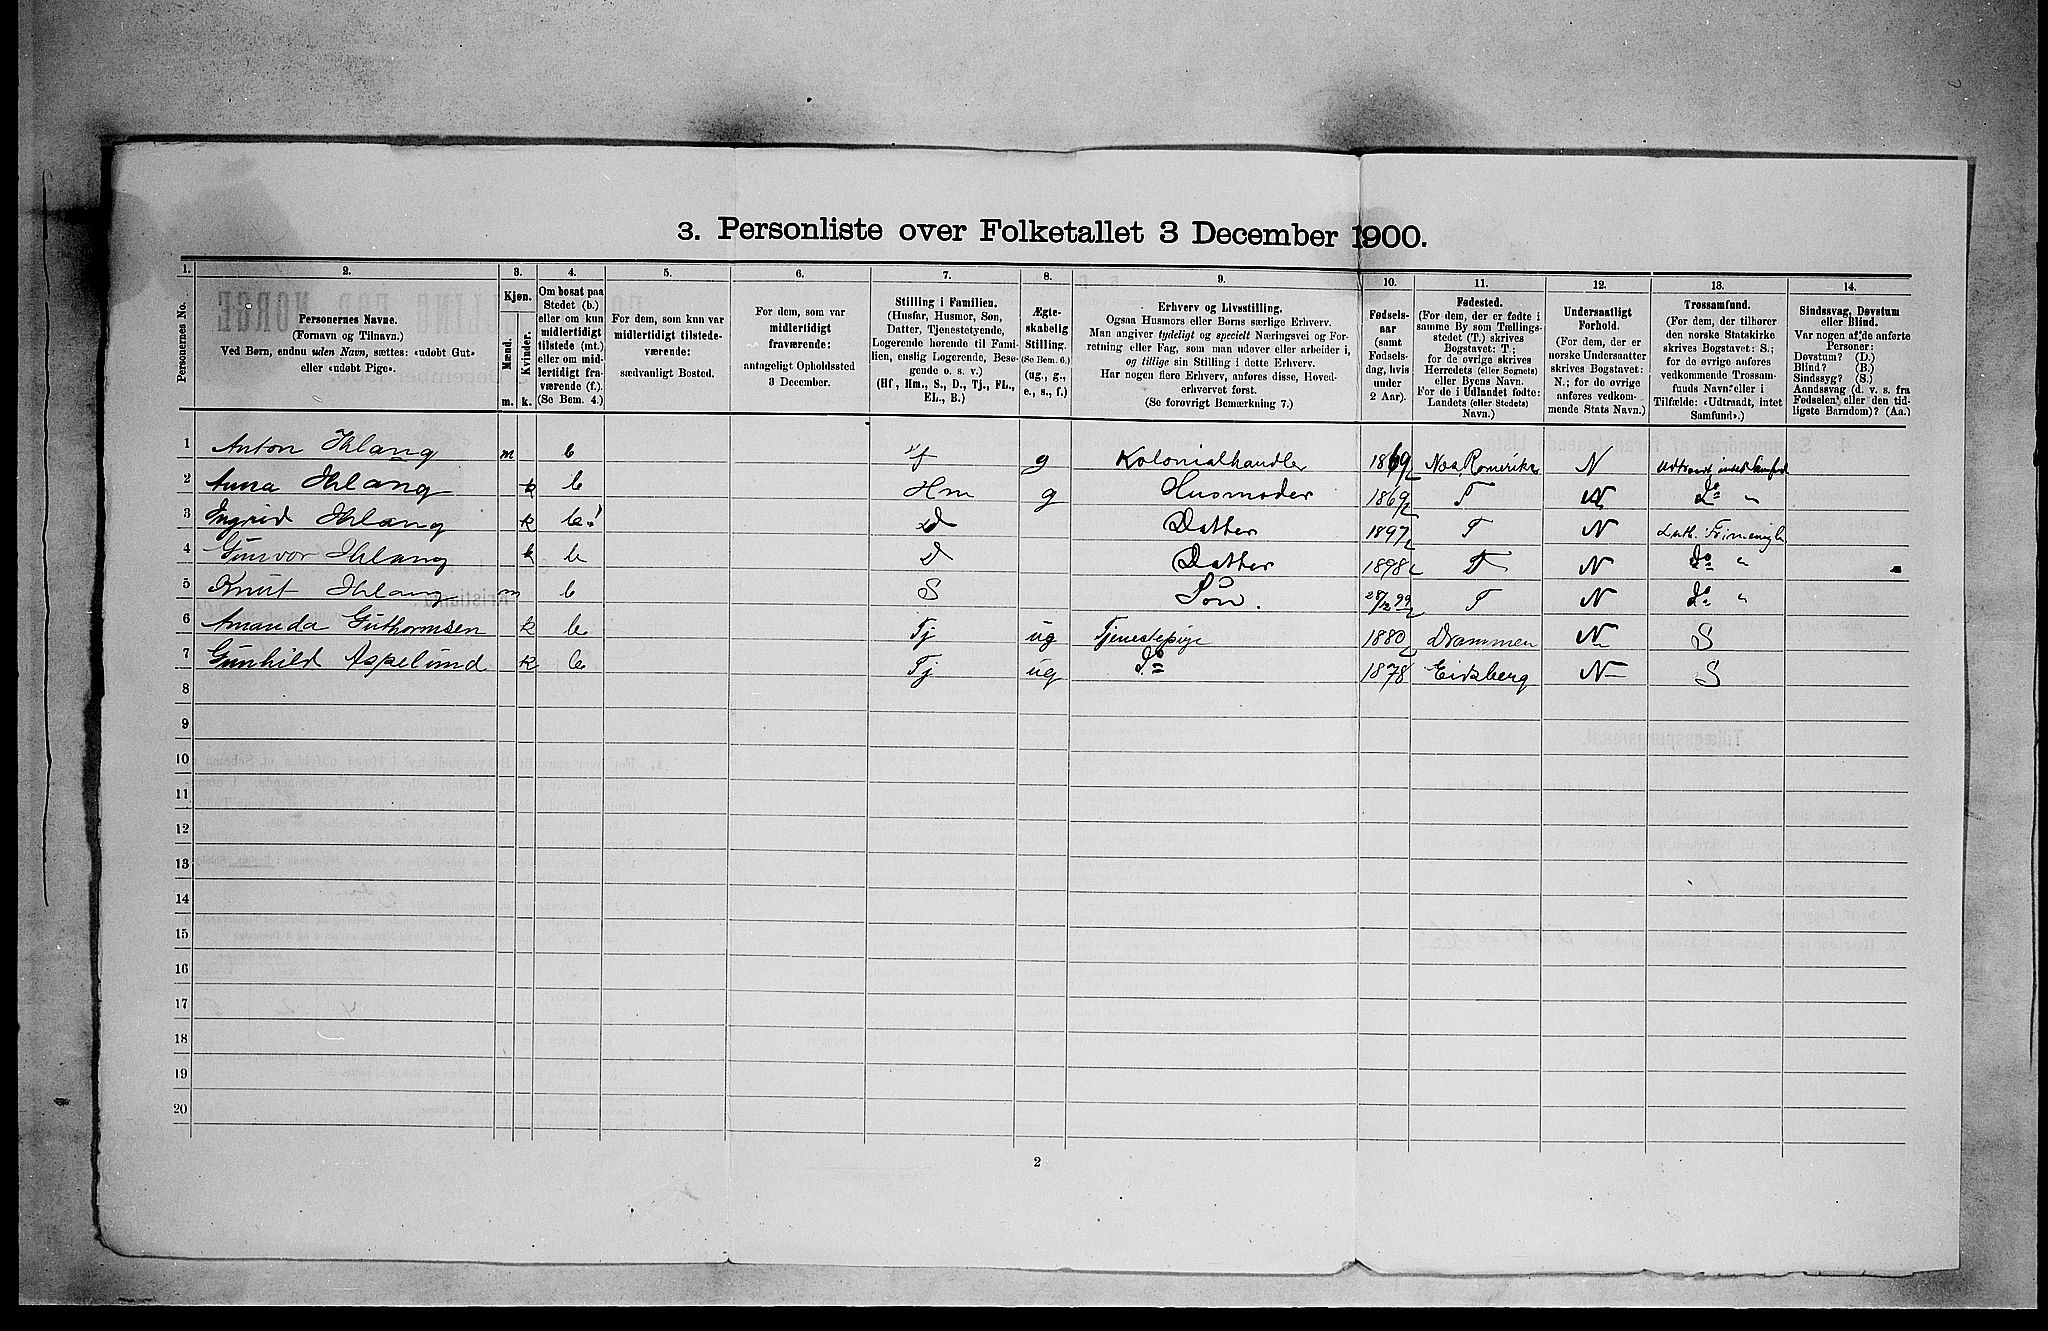 3. Personliste over Folketallet 3 December 1900.
1. 2. 3. 4. 5. 6. 7. 8. 9. 10. 11. 12. 13. 14.
Personernes No.
Personernes Navne.
(Fornavn og Tilnavn.)
Ved Børn, endnu uden Navn, sættes: «udøbt Gut»
eller «udøbt Pige».
Kjøn.
Mænd.
Kvinder.
m. k.
Om bosat paa
Stedet (b.)
eller om kun
midlertidigt
tilstede (mt.)
eller om mid-
lertidigt fra-
værende (f.)
(Se Bem. 4.)
For dem, som kun var
midlertidigt tilstede-
værende:
sædvanligt Bosted.
For dem, som var
midlertidigt
fraværende:
antageligt Opholdssted
3 December.
Stilling i Familien.
(Husfar, Husmor, Søn,
Datter, Tjenestetyende,
Logerende hørende til Fami-
lien, enslig Logerende, Besø-
gende o. s. v.)
(Hf, Hm., S., D., Tj., FL.,
EL., B.)
Ægte-
skabelig
Stilling.
(Se Bem. 6.)
(ug., g.,
e., s., f.)
Erhverv og Livsstilling.
Ogsaa Husmors eller Børns særlige Erhverv.
Man angiver tydeligt og specielt Næringsvei og For-
retning eller Fag, som man udøver eller arbeider i,
og tillige sin Stilling i dette Erhverv.
Har nogen flere Erhverv, anføres disse, Hoved-
erhvervet først.
(Se forøvrigt Bemærkning 7.)
Fødsels-
aar
(samt
Fødsels-
dag, hvis
under
2 Aar).
Fødested.
(For dem, der er fødte i
samme By som Tællings-
stedet (T.) skrives
Bogstavet: T.;
for de øvrige skrives
Herredets (eller Sognets)
eller Byens Navn.
For de i Udlandet fødte:
Landets (eller Stedets)
Navn.)
Undersaatligt
Forhold.
(For dem, der er
norske Undersaatter
skrives Bogstavet:
N.; for de øvrige
anføres vedkom-
mende Stats Navn.)
Trossamfund.
(For dem, der tilhører
den norske Statskirke
skrives Bogstavet: S.;
for de øvrige anføres
vedkommende Trossam-
funds Navn eller i
Tilfælde: «Udtraadt, intet
Samfund».)
Sindssvag, Døvstum
eller Blind.
Var nogen af de anførte
Personer:
Døvstum? (D.)
Blind? (B.)
Sindssyg? (S.)
Aandssvag (d. v. s. fra
Fødselen eller den tid-
ligste Barndom)? (Aa.)
1 Anton Ihlang m b g Kolonialhandler 1869 Nes, Romerike N Udtraadt intet Samfund
2 Anna Ihlang k b Hm g Husmoder 1869 T N Do "
3 Ingrid Ihlang k b! D Datter 1897 T N Luth. Frimenigh
4 Gunvor Ihlang k b D Datter 1898 T N Do "
5 Knut Ihlang m b S Søn. 28/2 99 T N Do "
6 Amanda Guthormsen k b Tj ug Tjenestepige 1880 Drammen N S
7 Gunhild Aspelund k b Tj ug Do 1878 Eidsberg N S
8
9
10
11
12
13
14
15
16
17
18
19
20
2